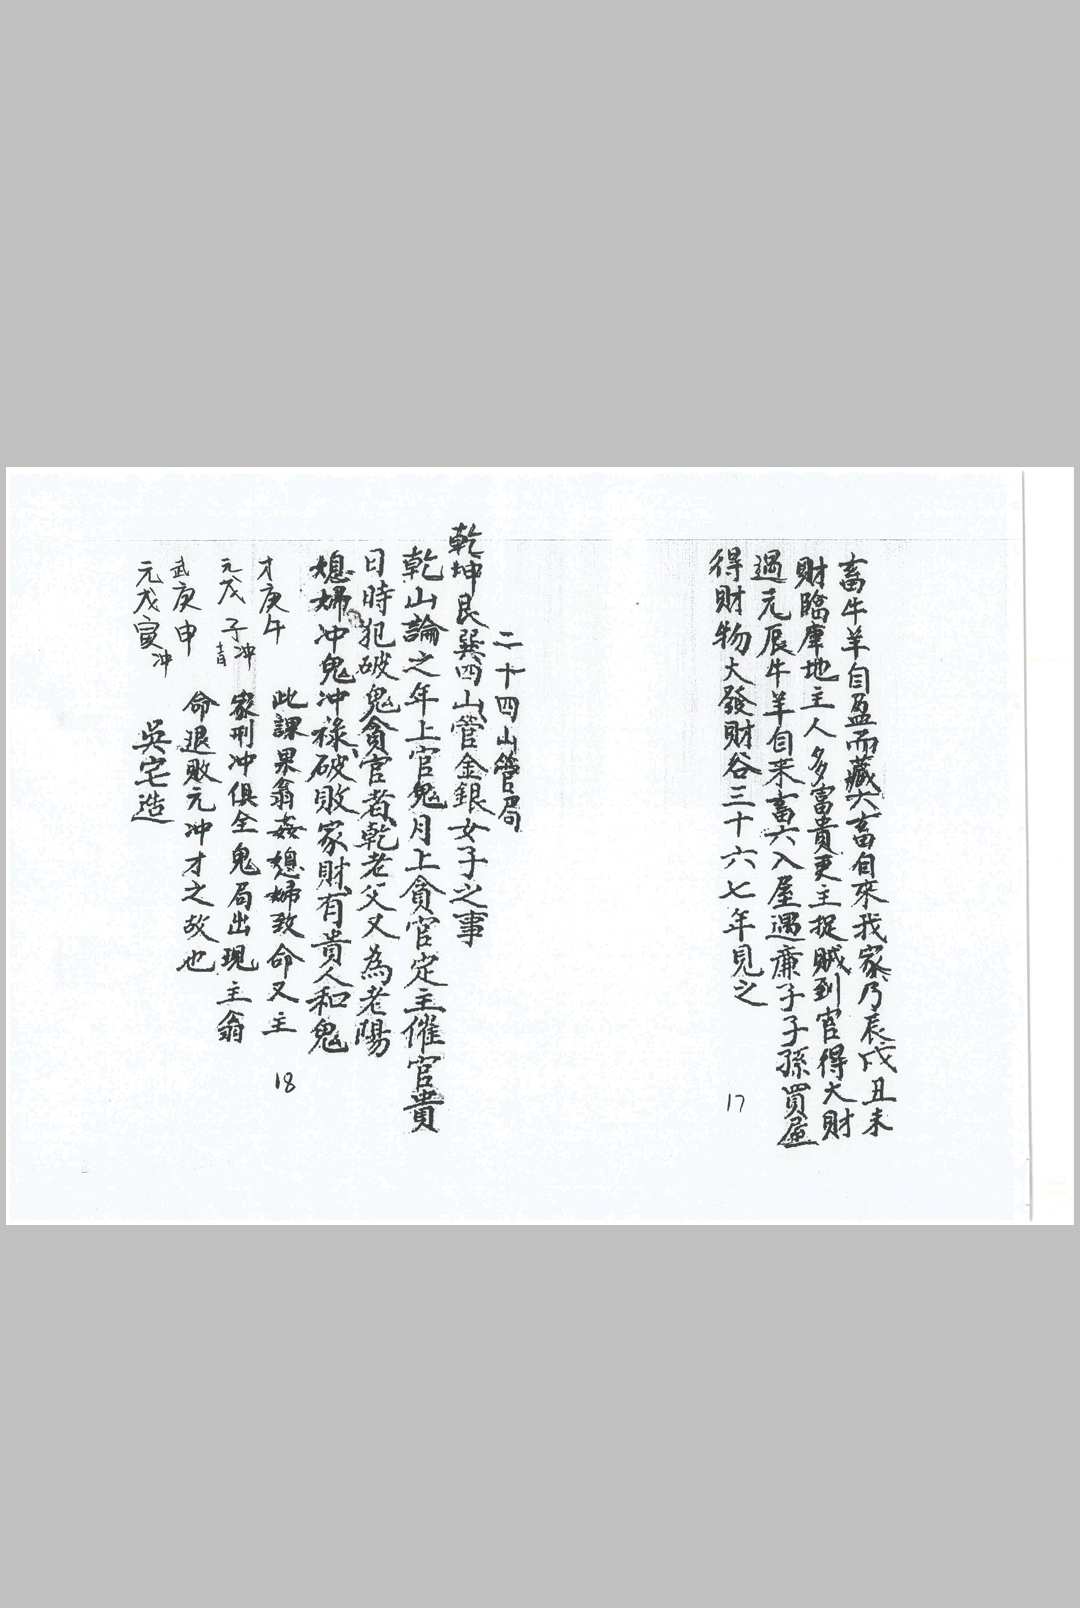 畜牛羊自盈而藏六畜自來我家乃辰戌丑未
財臨庫地主人多富貴更主捉賊到官得大財
過元辰牛羊自来畜六入屋遇廉子子孫買屋
得財物大發財谷三十六七年見之
17
二十四山管局
乾坤艮巽四山管金銀女子之事
乾山論之年上官鬼月上貪官定主催官貴
日時犯破鬼貪官者乾老父又為老陽
媳婦冲鬼冲祿破敗家財有貴人和鬼
才庚午 此課果翁姦媳婦致命又主
元戊子冲 家刑冲俱全鬼局出現主翁
武庚申 命退敗元冲才之故也
元戊寅冲 吳宅造
18